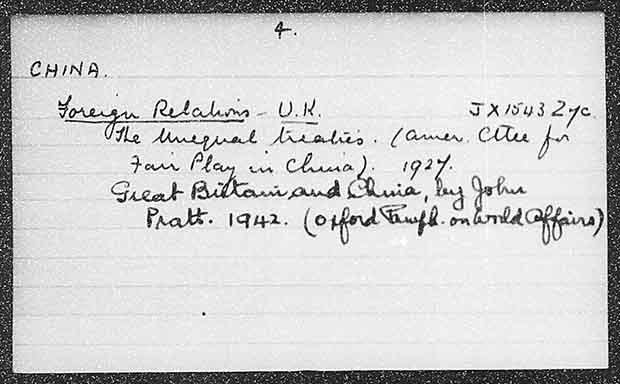 4.
CHINA.
Foreign Relations - U.K. JX1543 Zyc
The Unequal treaties. (Amer. Cttee for
Fair Play in China). 1927.
Great Britain and China, by John
Pratt. 1942. (Oxford Pamph. on World Affairs)